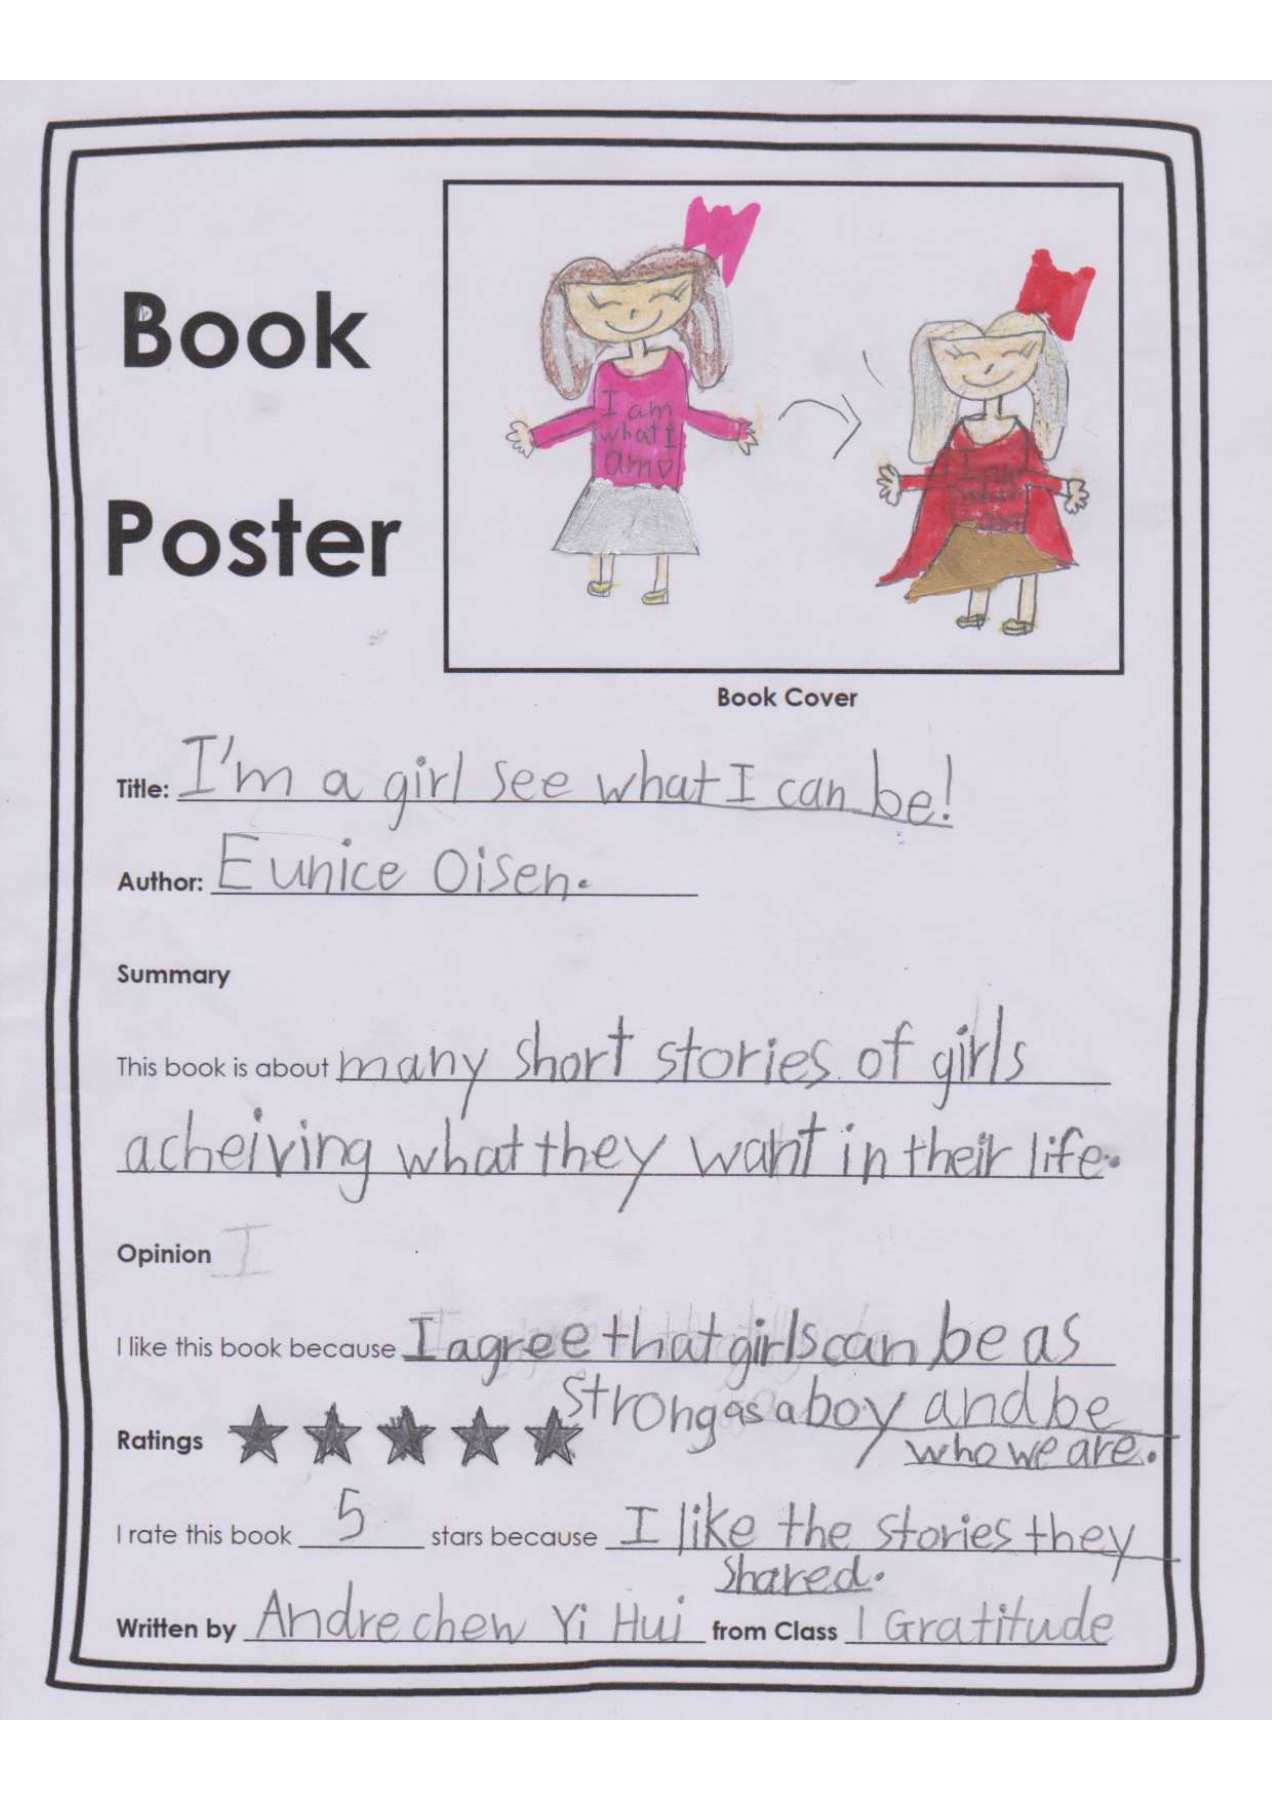 Book
Poster
I am
what I
am♡
I
Book Cover
Title: I'm a girl see what I can be!
Author: Eunice Oisen.
Summary
This book is about many short stories of girls
acheiving what they want in their life.
Opinion I
I like this book because I agree that girls can be as
strong as a boy and be
Ratings
who we are.
I rate this book 5 stars because I like the stories they
shared.
Written by Andre chew Yi Hui from Class 1 Gratitude